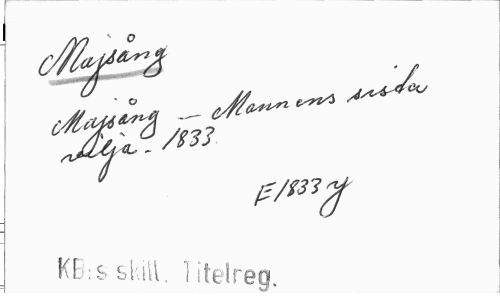 Majsång
Majsång – Mannens sista
vilja. 1833.
E 1833 y
KB:s skill. Titelreg.